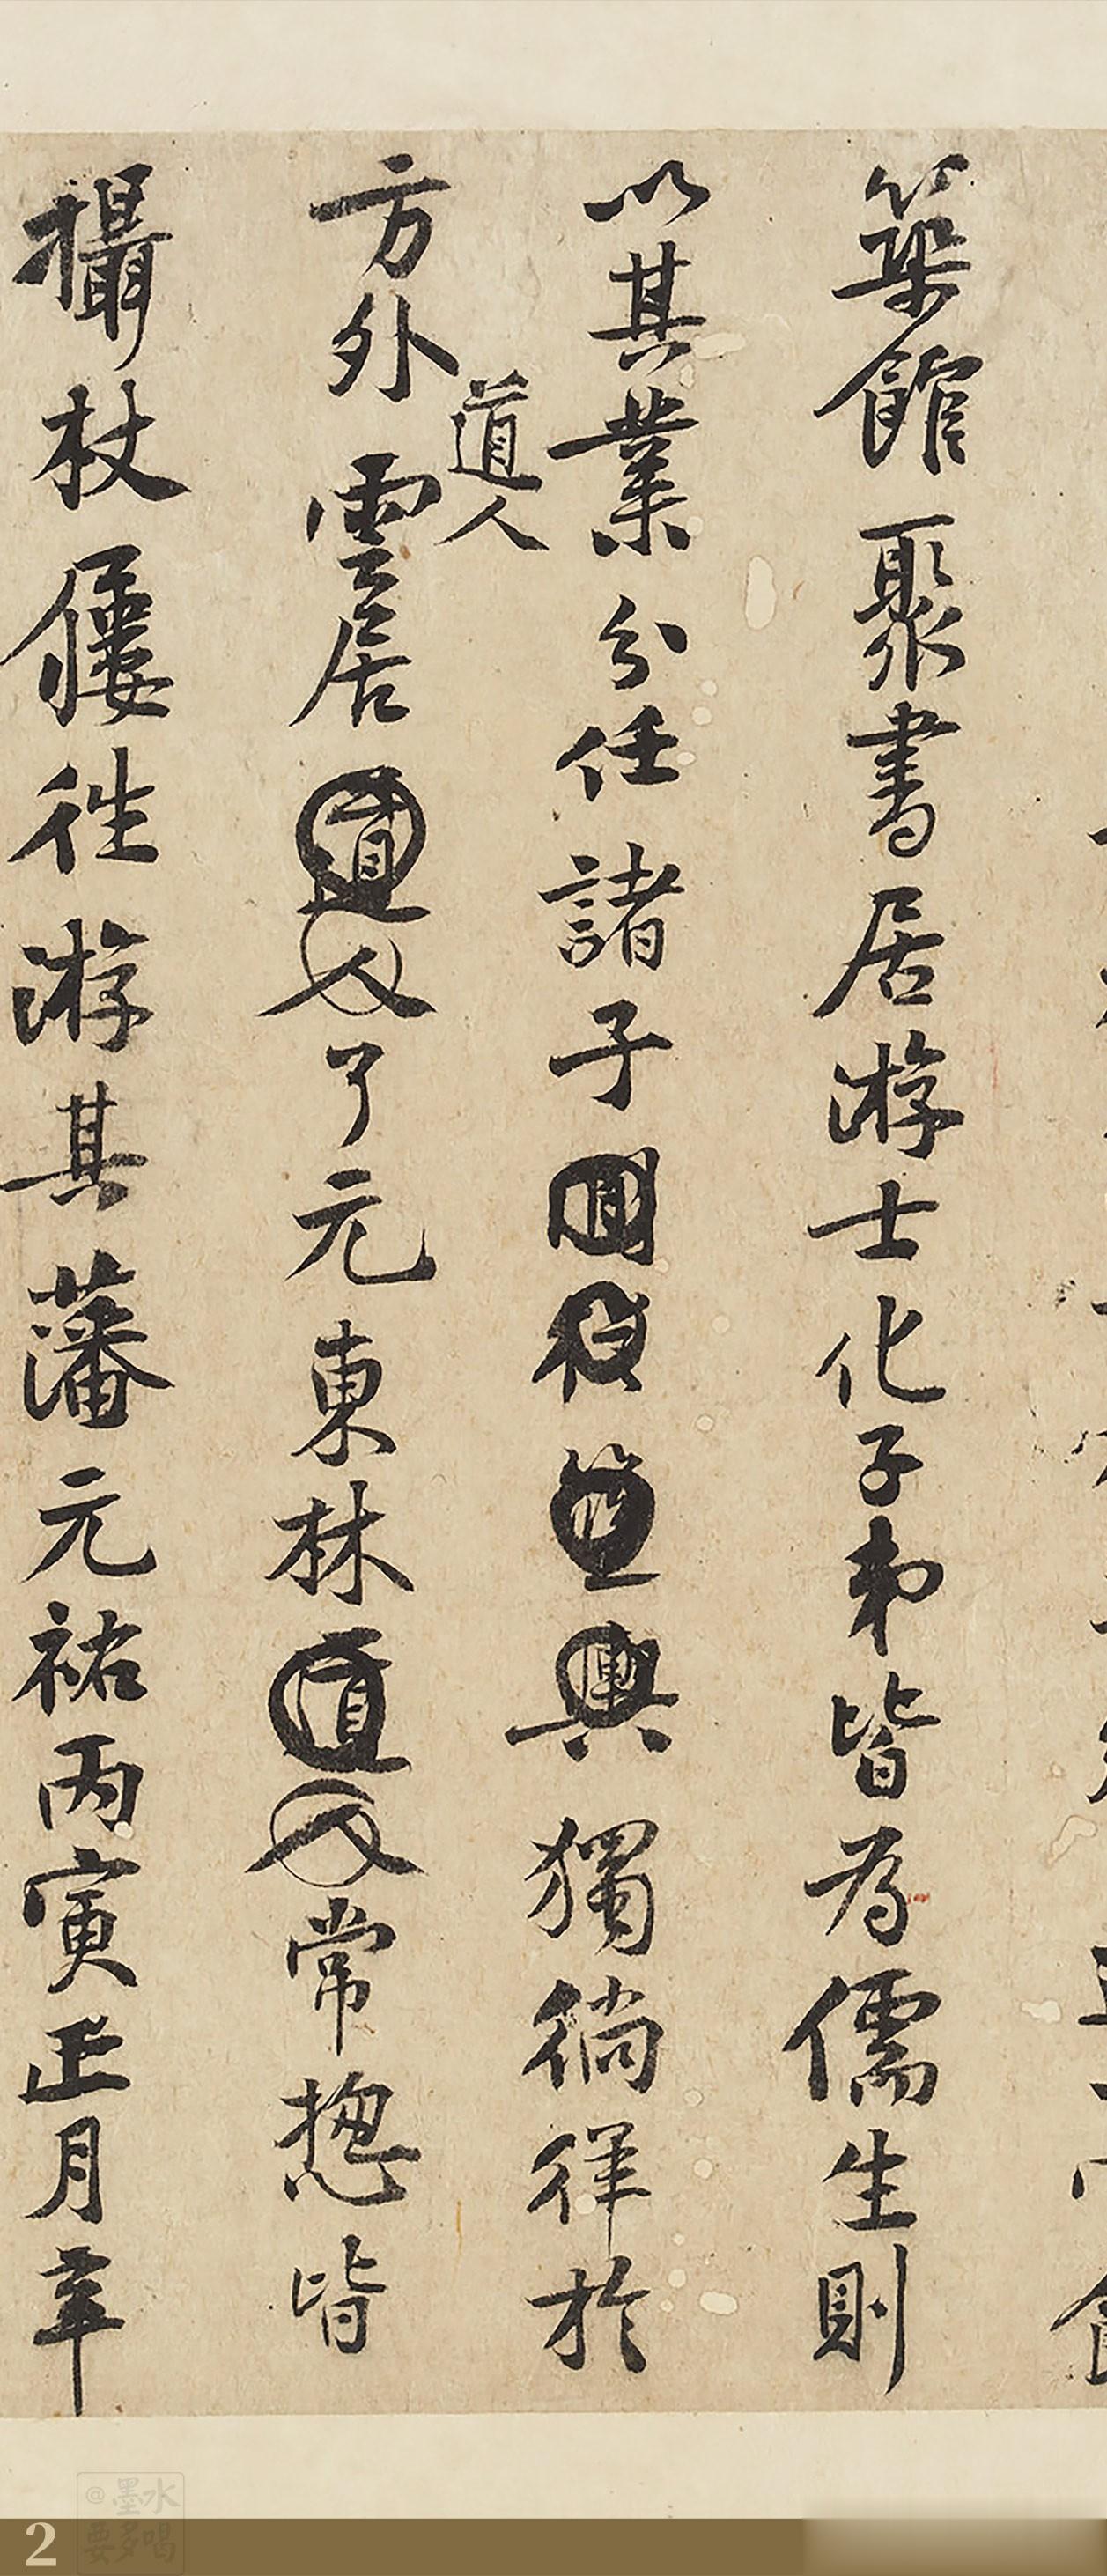 築館聚書居游士化子弟皆為儒生則
以其業分任諸子獨徜徉於
道人
方外雲居道人了元東林道人常揔皆
攝杖僂往游其藩元祐丙寅正月辛
2
@墨水
要多喝